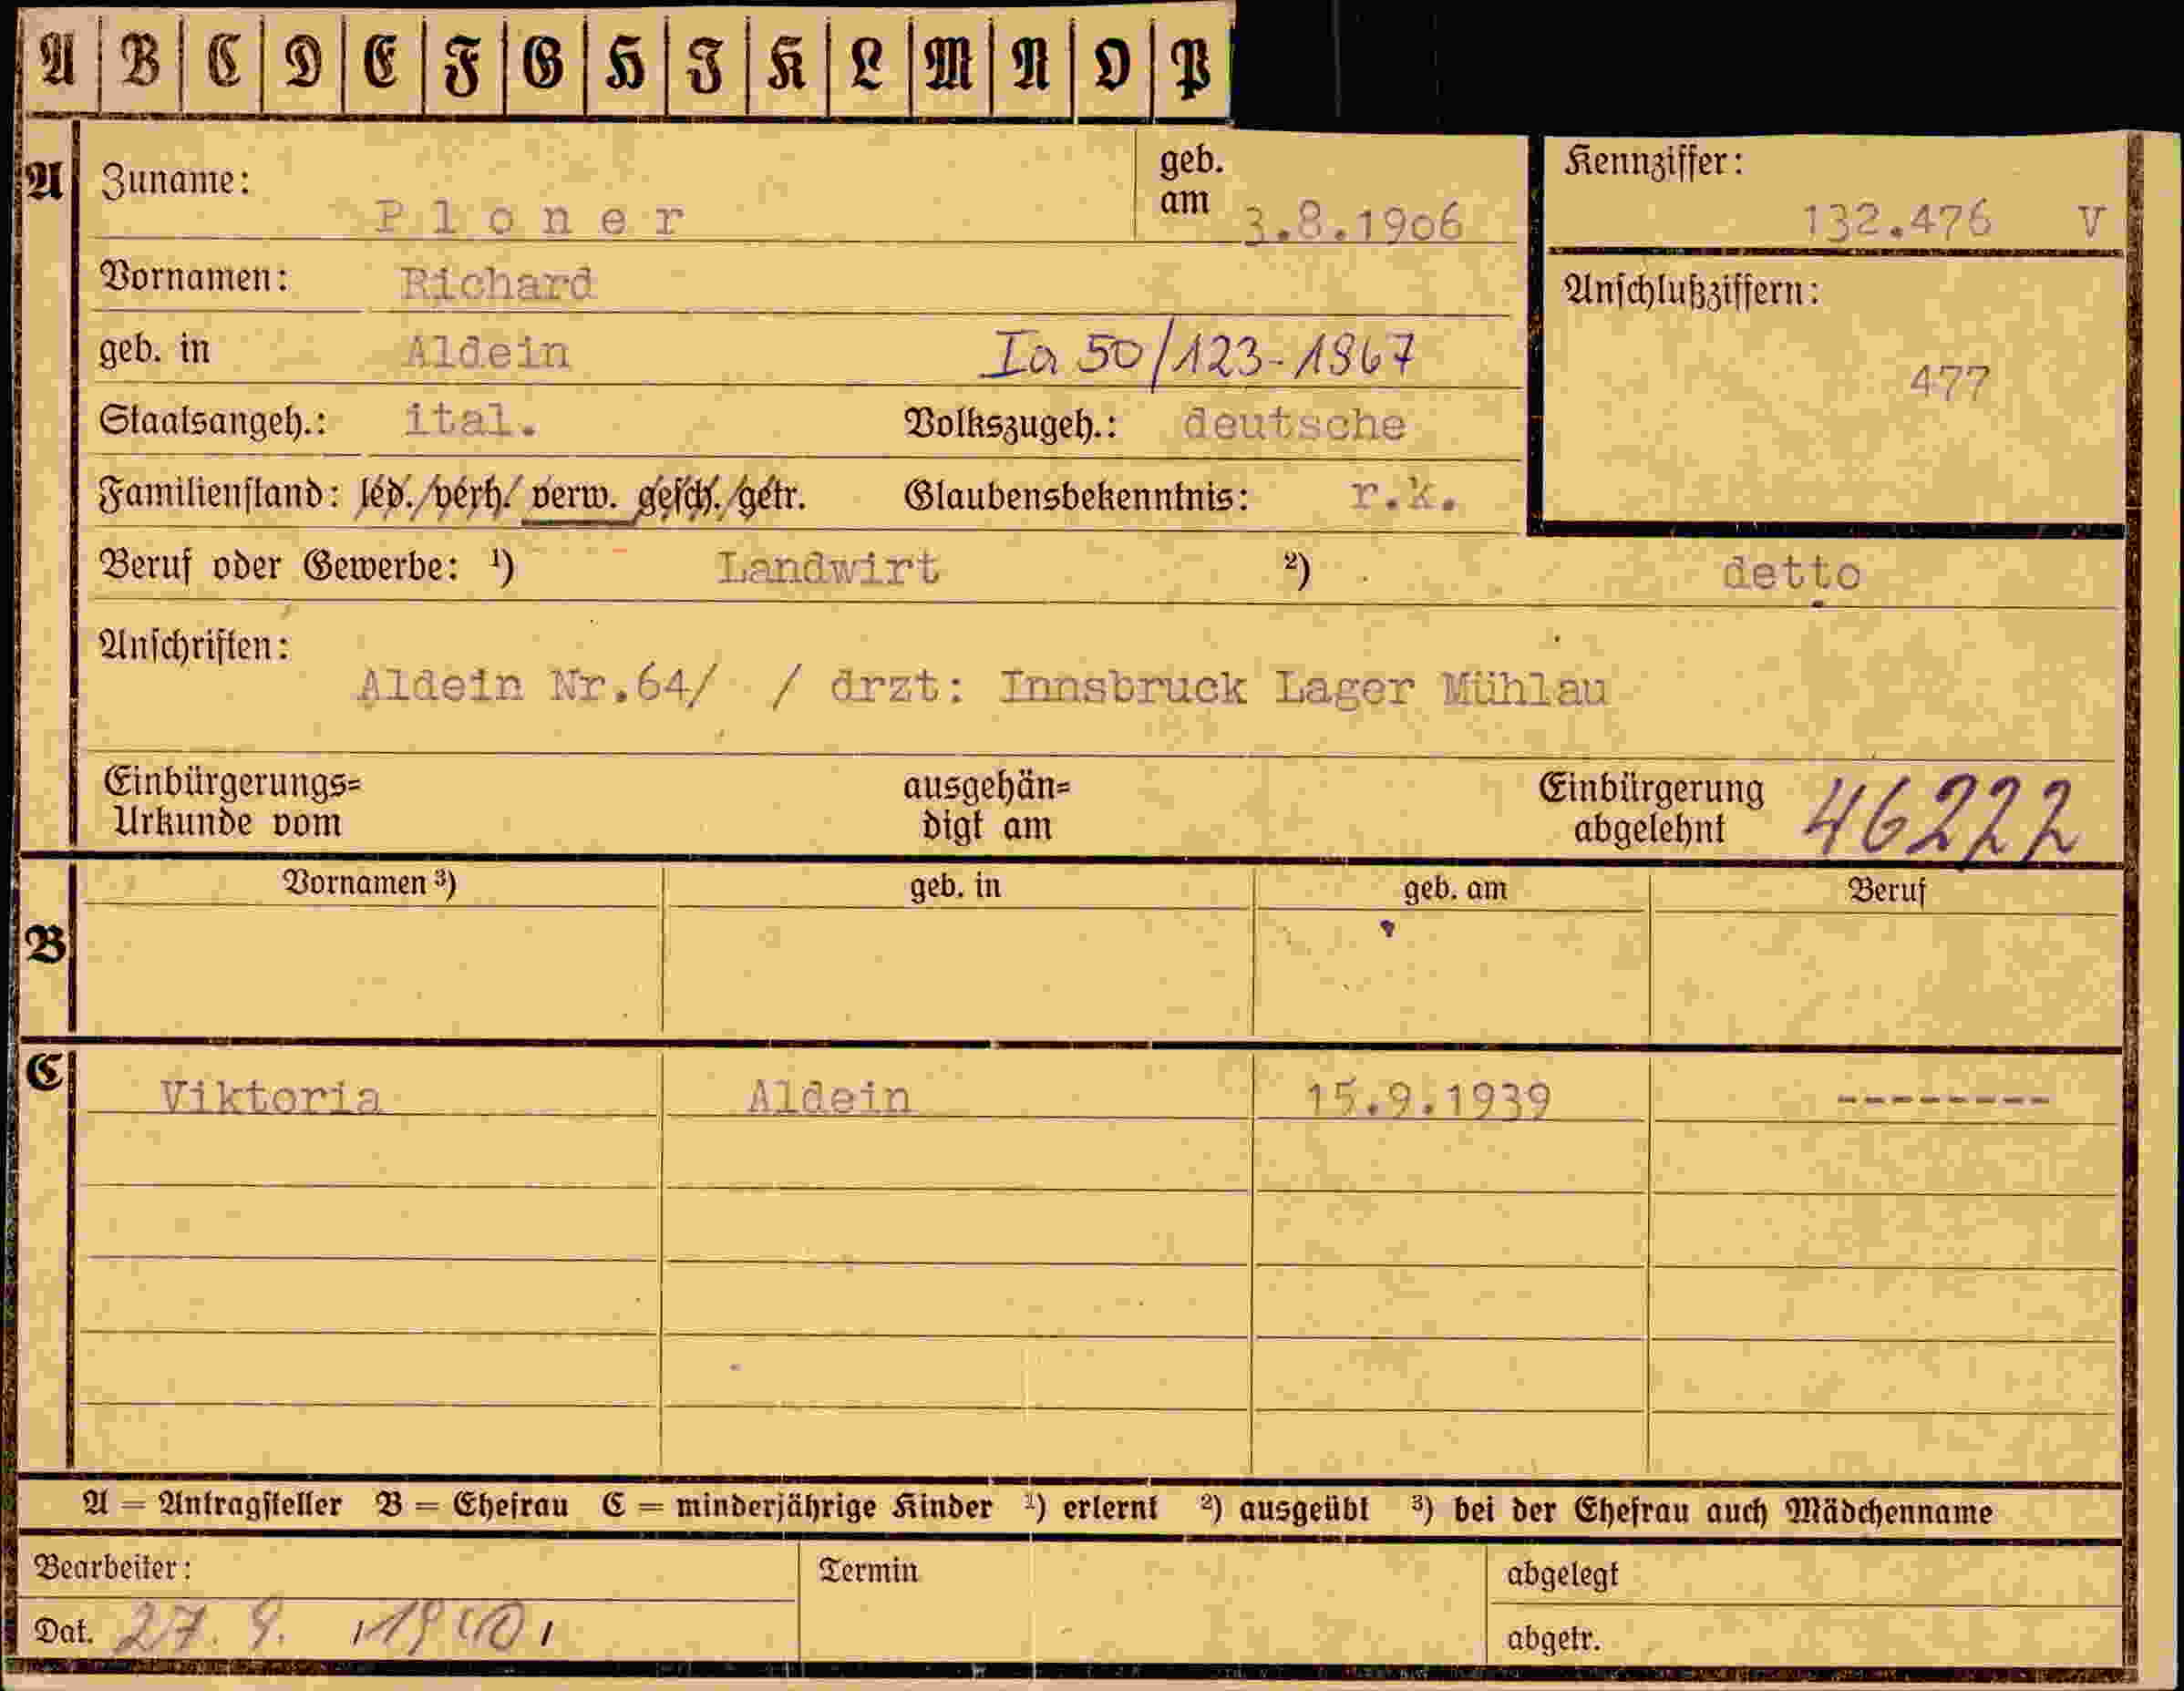 A B C D E F G H I K L M N O P
A Zuname: Ploner geb. am 3.8.1906 Kennziffer: 132.476 V
Vornamen: Richard Anschlußziffern:
geb. in Aldein Ia 50/123-1867 477
Staatsangeh.: ital. Volkszugeh.: deutsche
Familienstand: led./verh./ verw. gesch./getr. Glaubensbekenntnis: r.k.
Beruf oder Gewerbe: ¹) Landwirt ²) detto
Anschriften:
Aldein Nr.64/ / drzt: Innsbruck Lager Mühlau
Einbürgerungs= ausgehän= Einbürgerung 46222
Urkunde vom digt am abgelehnt
Vornamen ³) geb. in geb. am Beruf
B
C Viktoria Aldein 15.9.1939 --------
A = Antragsteller B = Ehefrau C = minderjährige Kinder ¹) erlernt ²) ausgeübt ³) bei der Ehefrau auch Mädchenname
Bearbeiter: Termin abgelegt
Dat. 27. 9. 1940 abgetr.